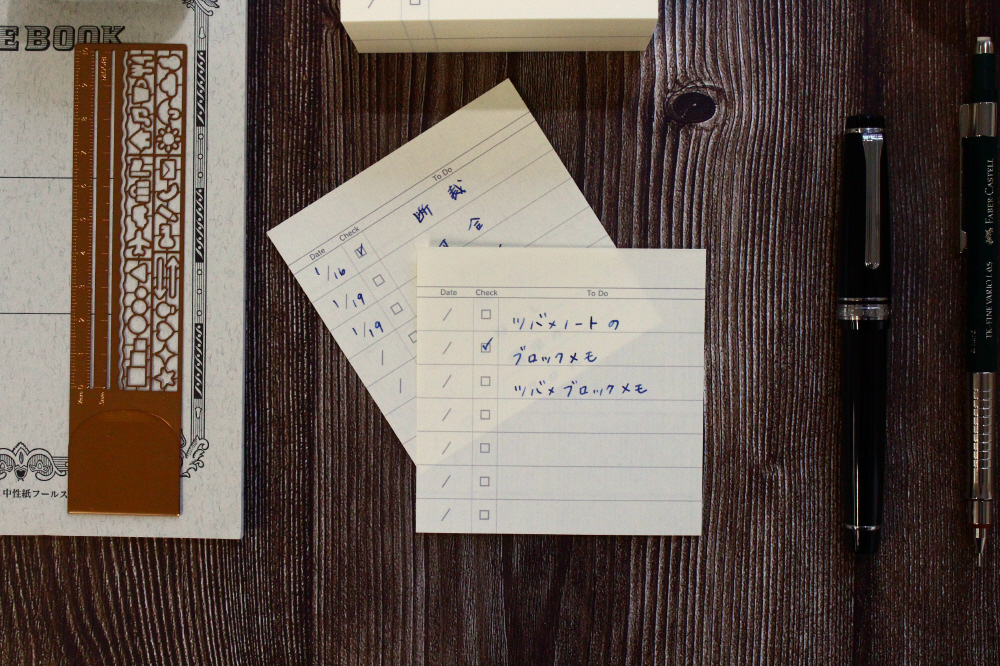 E BOOK
中性紙フールス
To Do
Date Check
断裁
1/16
1/19
1/19
Date Check To Do
ツバメノートの
ブロックメモ
ツバメブロックメモ
FABER-CASTELL
TK-FINE VARIO L 0.5